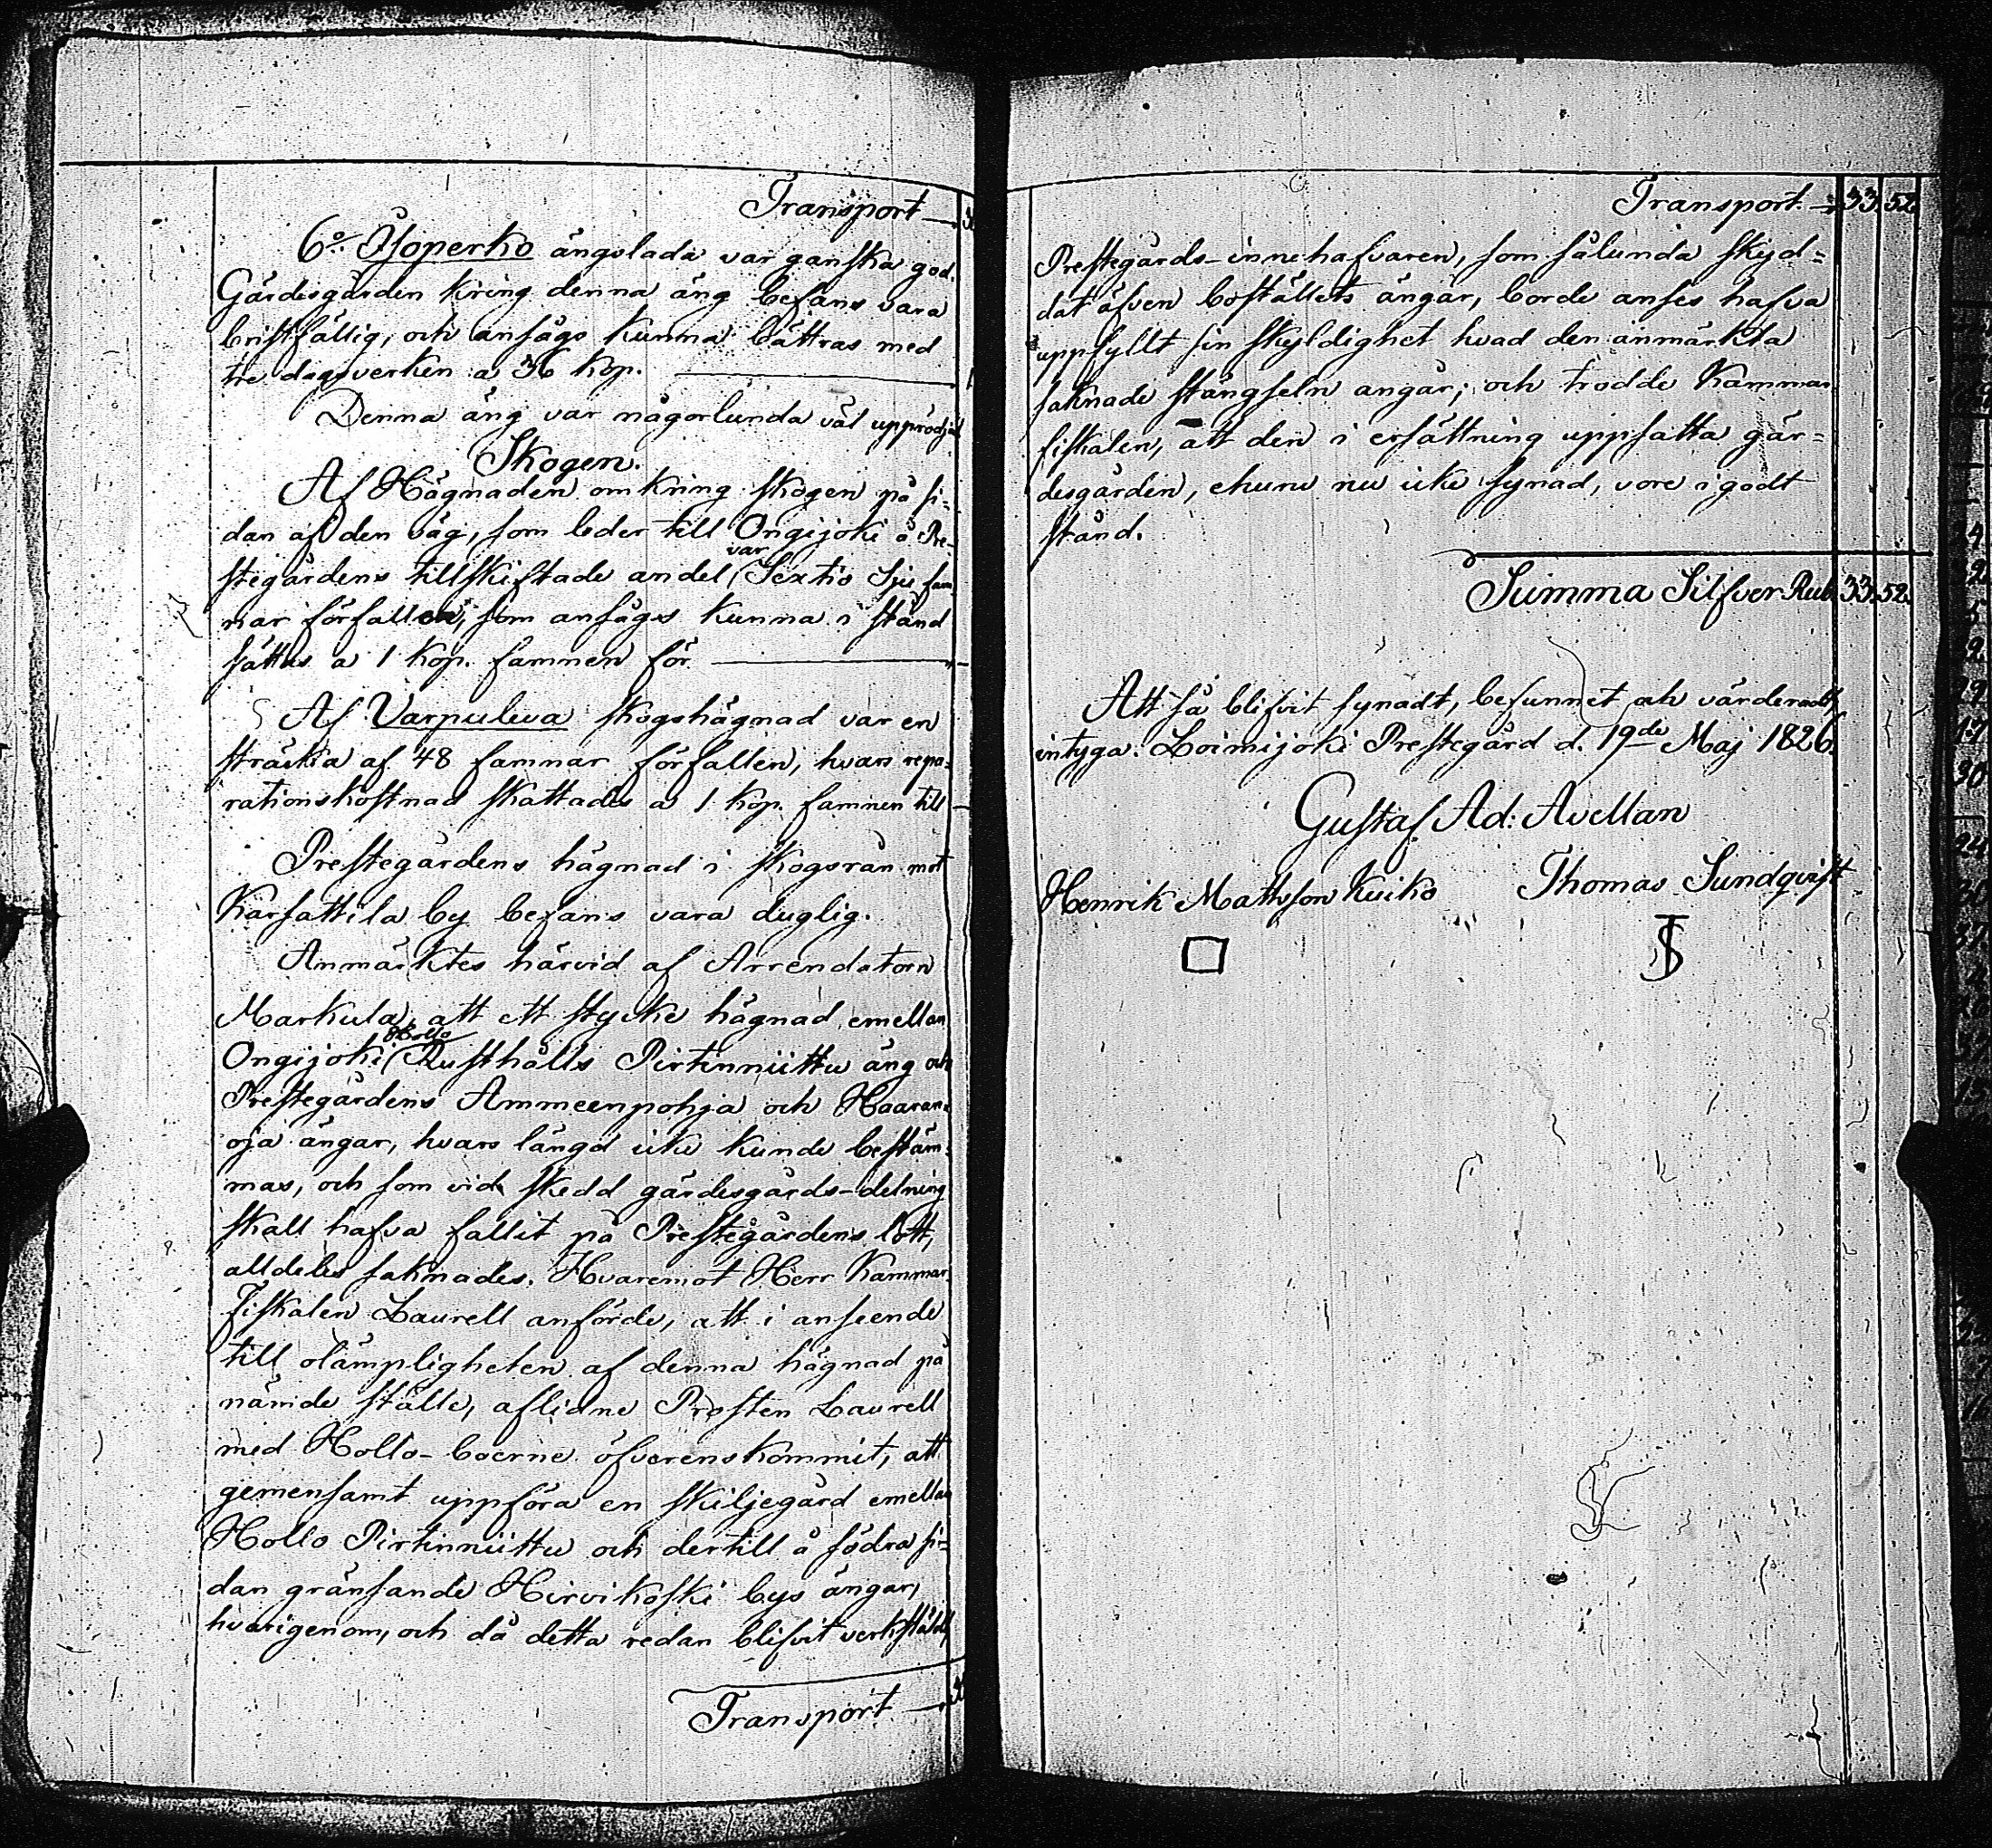 Transport
6o. Isoperko ängslada var ganska god.
Gärdesgården kring denna äng befans vara
bristfällig, och ansågs kunna bättras med
tre dagsverken a 36 kop.
Denna äng var någorlunda väl upprödjad
Skogen.
Af Hägnaden omkring skogen på si-
dan af den väg, som leder till Ongijoki å Pre-
var
stegårdens tillskiftade andel Sextio Sju fam-
nar förfallen, som ansågs kunna i stånd
sättas a 1 kop. famnen för
Af Varpuleva skogshägnad var en
sträcka af 48 famnar förfallen, hvars repa-
rationskostnad skattades a 1 kop. famnen till
Prestegårdens hägnad i skogsrån mot
Karsattila by befans vara duglig.
Anmärktes härvid af Arrendatorn
Markula, att ett stycke hägnad emellan
Hollo
Ongijoki Rusthålls Pirtinniittu äng och
Prestegårdens Ammeenpohja och Haaran-
oja ängar, hvars längd icke kunde bestäm-
mas, och som vid skedd gärdesgårds-delning
skall hafva fallit på Prestegårdens lott,
alldeles saknades. Hvaremot Herr Kammar-
Fiskalen Laurell anförde, att i anseende
till olämpligheten af denna hägnad på
nämde ställe, aflidne Prosten Laurell
med Hollo-boerne öfverenskommit, att
gemensamt uppföra en skiljegård emellan
Hollo Pirtinniittu och dertill å södra si-
dan gränsande Hirvikoski bys ängar,
hvarigenom, och då detta redan blifvit verkstäldt
Transport
Transport 33. 52
Prestegårds-innehafvaren, som sålunda skyd-
dat äfven boställets ängar, borde anses hafva
uppfyllt sin skyldighet hvad den anmärkta
saknade stängseln angår; och trodde Kammar
fiskalen, att den i ersättning uppsatta gär-
desgården, ehuru nu icke synad, vore i godt
stånd.
Summa Silfver Rub. 33. 52.
Att så blifvit synadt, befunnet och värderadt,
intyga. Loimijoki Prestegård d. 19de Maj 1826.
Gustaf Ad: Avellan
Henrik Mathsson Kuiko Thomas Sundqvist
TS